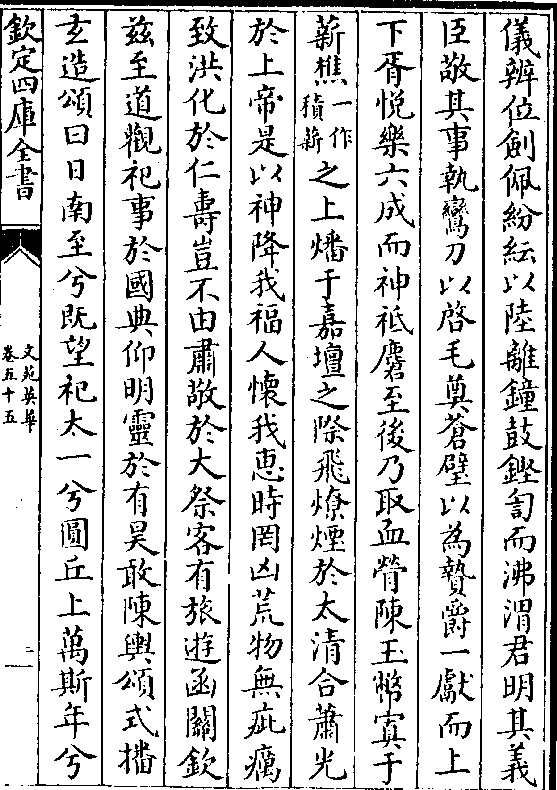 儀辨位劍佩紛紜以陸離鐘鼓鏗訇而沸渭君明其義
臣敬其事執鸞刀以啓毛奠蒼璧以為贄爵一獻而上
下胥悦樂六成而神祗麏至後乃取血膋陳玉幣寘于
薪樵一作積薪之上燔于嘉壇之際飛燎煙於太清合蕭光
於上帝是以神降我福人懷我惠時罔凶荒物無疵癘
致洪化於仁壽豈不由肅敬於大祭客有旅遊函關欽
兹至道觀祀事於國典仰明靈於有昊敢陳輿頌式播
玄造頌曰日南至兮既望祀太一兮圓丘上萬斯年兮
欽定四庫全書
文苑英華
卷五十五
二